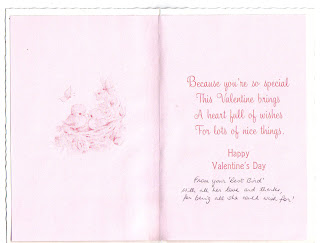 Because you're so special
This Valentine brings
A heart full of wishes
For lots of nice things.
Happy
Valentine's Day
From your 'Best Bird'
with all her love and thanks,
for being all she could wish for!